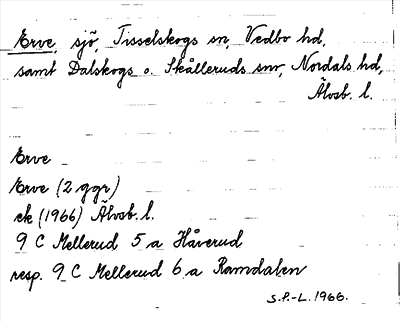 Erve, sjö, Tisselskogs sn, Vedbo hd,
samt Dalskogs o. Skålleruds snr, Nordals hd,
Älvsb. l.
Erve
Erve (2 ggr)
ek (1966) Älvsb. l.
9 C Mellerud 5 a Håverud
resp. 9 C Mellerud 6 a Ramdalen
S.P.-L. 1966.